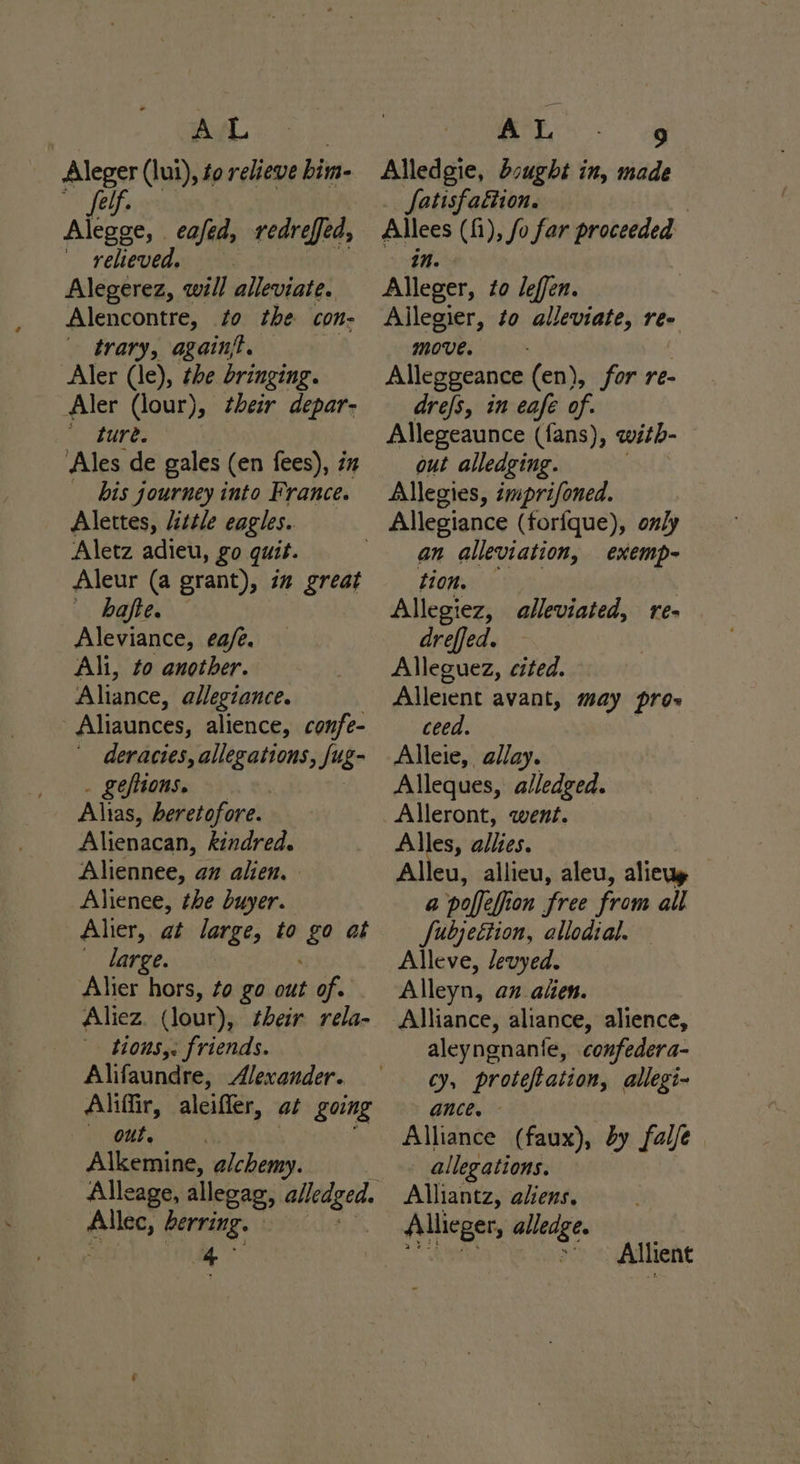 AL
Aleger (lui), to relieve him-
ſelf.
Alegge, eaſed, redreſſed,
relieved.
Alegerez, will alleviate.
Alencontre, to the con-
trary, againſt.
Aler (le), the bringing.
Aler (lour), their depar-
ture.
Ales de gales (en fees), in
his journey into France.
Alettes, little eagles.
Aletz adieu, go quit.
Aleur (a grant), in great
haſte.
Aleviance, eaſe.
Ali, to another.
Aliance, allegiance.
Aliaunces, alience, confe-
deracies, allegations, ſug-
geſtions.
Alias, heretofore.
Alienacan, kindred.
Aliennee, an alien.
Alienee, the buyer.
Alier, at large, to go at
large.
Alier hors, to go out of.
Aliez (lour), their rela-
tions, friends.
Alifaundre, Alexander.
Aliſſir, aleiſſer, at going
out.
Alkemine, alchemy.
Alleage, allegag, alledged.
Allec, herring.
4
AL 9
Alledgie, bought in, made
ſatisfaction.
Allees (ſi), ſo far proceeded
in.
Alleger, to leſſen.
Allegier, to alleviate, re-
move.
Alleggeance (en), for re-
dreſs, in eaſe of.
Allegeaunce (ſans), with-
out alledging.
Allegies, impriſoned.
Allegiance (forſque), only
an alleviation, exemp-
tion.
Allegiez, alleviated, re-
dreſſed.
Alleguez, cited.
Alleient avant, may pro-
ceed.
Alleie, allay.
Alleques, alledged.
Alleront, went.
Alles, allies.
Alleu, allieu, aleu, alieu,
a poſſeſſion free from all
ſubjection, allodial.
Alleve, levyed.
Alleyn, an alien.
Alliance, aliance, alience,
aleyngnanſe, confedera-
cy, proteſtation, allegi-
ance.
Alliance (faux), by falſe
allegations.
Alliantz, aliens.
Allieger, alledge.
Allient